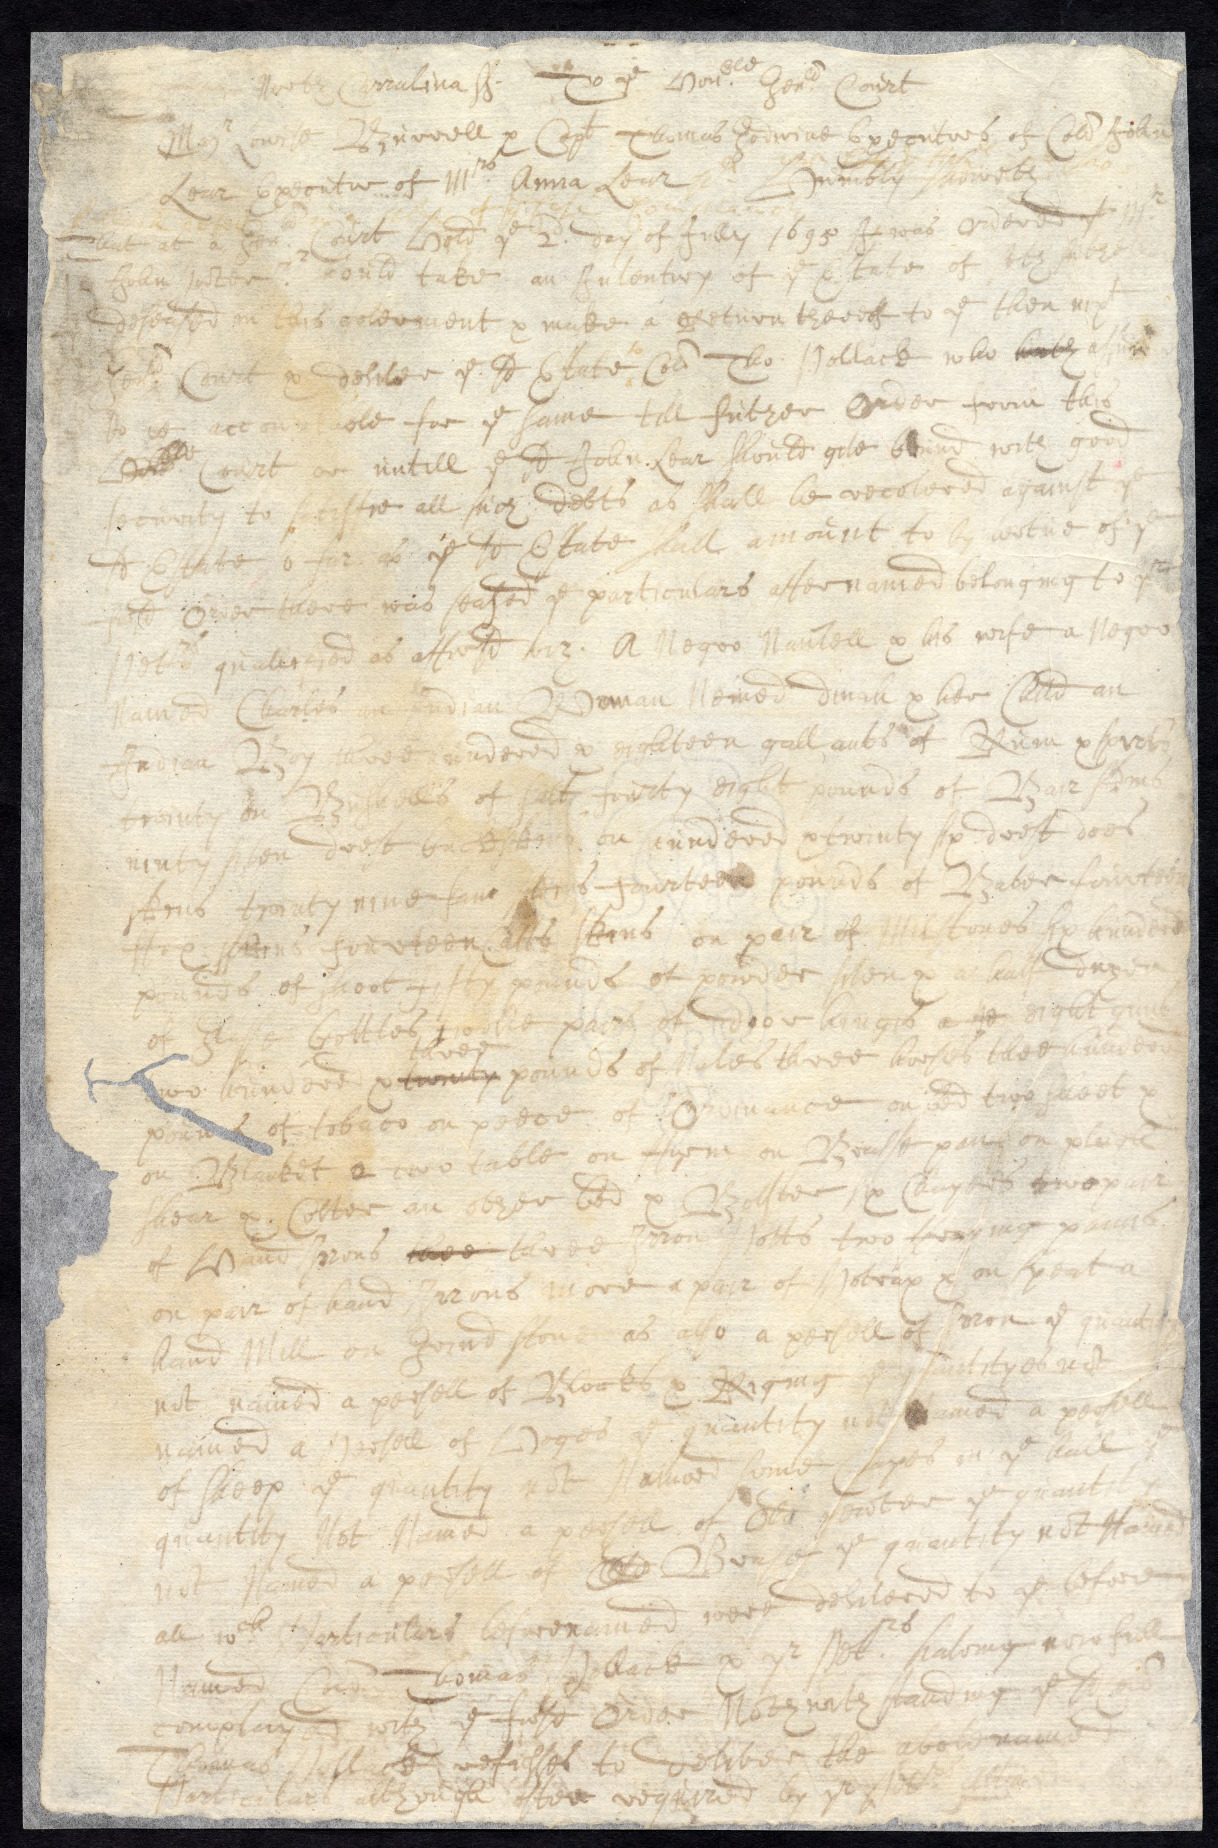 North Carrolina ss. To ye Honble Genll Court
Majr Lewise Burwell & Capt Thomas Godwine Executrs of Colll John
Lear Executor of Mrs Anna Lear Humbly Sheweth
that at a Genll Court Held ye 2d day of July 1695 It was Ordered yt Mr
John Porter should take an Inventory of ye Estate of
deseased in this goverment & make a Returne thereof to ye then nixt
Genll Court & deliver ye sd Estate to Coll Tho Pollack who hath
to be accountable for ye same till further Order from this
Honble Court or untill ye sd John Lear should give bound with good
security to sattisfie all such debts as shall be recovered against ye
sd Estate so far as ye sd Estate shall amount to by vertue of ye
said Order there was seased ye particulars affter named belonging to yr
Petrs qualified as afforsd viz. A Negro Named & his wife a Negro
Named Charles an Indian Woman Named dinah & her Child an
Indian Boy three hundered & eighteen gallants of Rum & spirits
twinty on Bushells of salt fourty eight pounds of Bair skins
ninty seven drest buckskins on hundered & twinty six drest does
skins twinty nine fane skins fourteen pounds of Baber fourteen
skins fourteen Catts skins on pair of Milstones six hundered
pounds of shoot fifty pounds of powder seven & a half duzen
of Glase bottles twelve pairs of doore hinges eight guns
two hundered & twinty three pounds of Nales three horses three hundered
pounds of tobaco on peece of Ordinance on bed two sheet &
on Blanket two table on Brasse pann on plucll
shear & Colter an other bed & Bolster six Chayres two pair
of Hand Irons thee three Irron Potts two frying panns
on pair of hand Irrons more a pair of Potrax & on speat a
hand Mill on Grind stone as also a persell of Irron ye quantity
not named a persell of Blocks & Riging ye quantityes not
named a Persell of Hoges ye quantity not Named a persell
of sheep ye quantity not Named some on ye ye
quantity Not Named a persell of Old pewter ye quantity
not Named a persell of Old Brase ye quantity not Named
all wch Particulars beforenamed were delivered to ye before
Named Coll Thomas Pollack & yr Petrs haveing now full
complayed with ye first Order Nothwithstanding ye sd Coll
Thomas Pollack refusses to deliver the abovenamed
Particulars although often required by yr Petrs